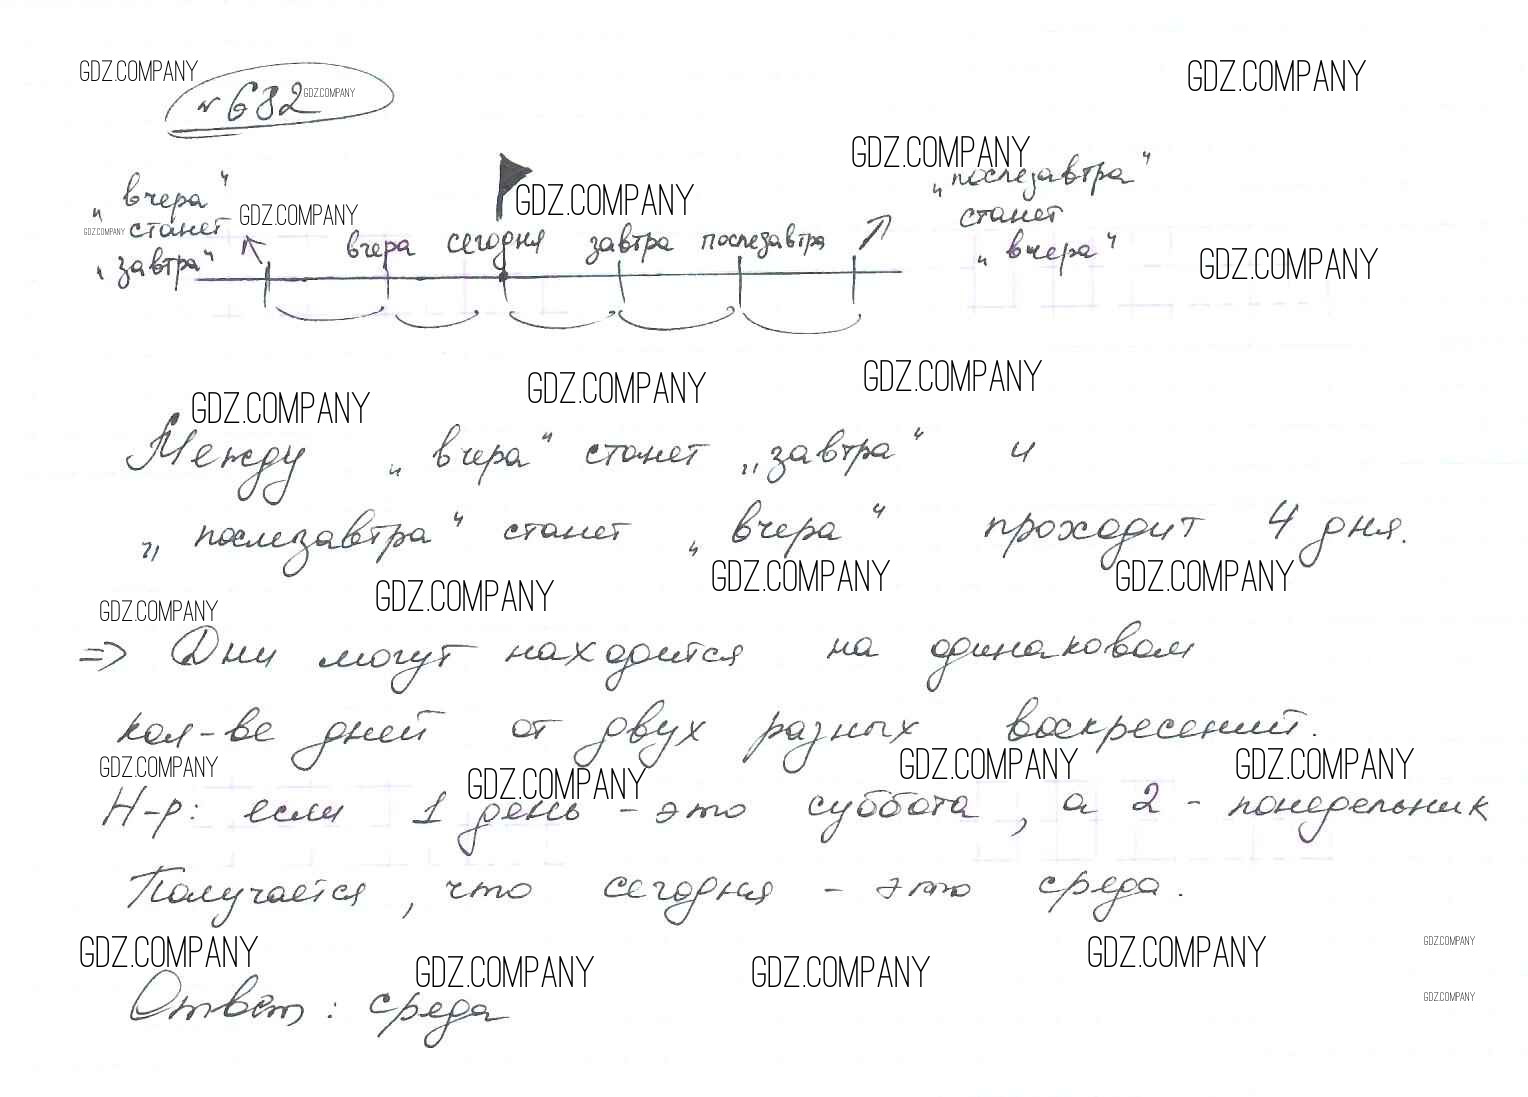 GDZ.COMPANY
GDZ.COMPANY
№ 682 GDZ.COMPANY
GDZ.COMPANY
"послезавтра"
станет
"вчера"
"вчера"
станет
"завтра"
GDZ.COMPANY
GDZ.COMPANY
GDZ.COMPANY
вчера сегодня завтра послезавтра
GDZ.COMPANY
GDZ.COMPANY GDZ.COMPANY GDZ.COMPANY
Между „вчера" станет „завтра" и
„послезавтра" станет „вчера" проходит 4 дня.
GDZ.COMPANY GDZ.COMPANY GDZ.COMPANY GDZ.COMPANY
=> Дни могут находится на одинаковом
кол-ве дней от двух разных воскресений.
GDZ.COMPANY GDZ.COMPANY GDZ.COMPANY GDZ.COMPANY
Н-р: если 1 день - это суббота, а 2 - понедельник
Получается, что сегодня - это среда.
GDZ.COMPANY GDZ.COMPANY GDZ.COMPANY GDZ.COMPANY GDZ.COMPANY
Ответ: среда
GDZ.COMPANY